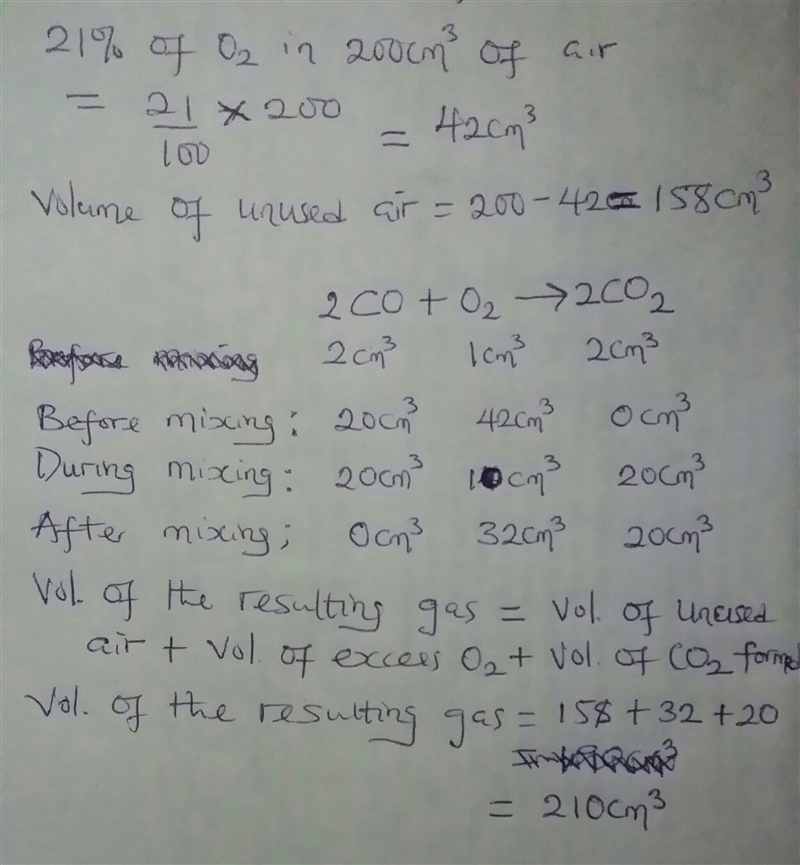 21% of O2 in 200cm³ of air
= 21/100 × 200 = 42cm³
Volume of unused air = 200 - 42 = 158cm³
2CO + O2 → 2CO2
2cm³ 1cm³ 2cm³
Before mixing: 20cm³ 42cm³ 0cm³
During mixing: 20cm³ 10cm³ 20cm³
After mixing; 0cm³ 32cm³ 20cm³
Vol. of the resulting gas = Vol. of unused
air + Vol of excess O2 + Vol. of CO2 formed
Vol. of the resulting gas = 158 + 32 + 20
= 210cm³